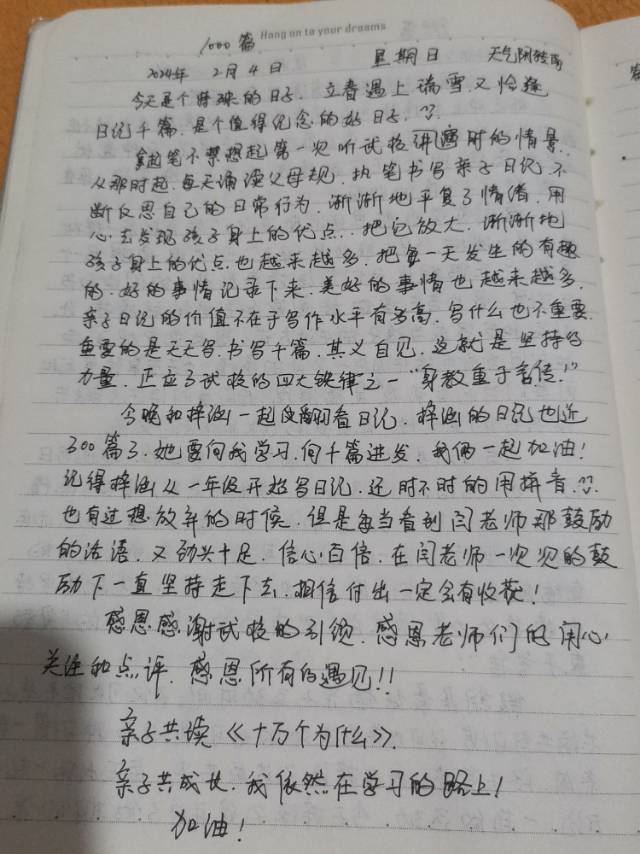 Hang on to your dreams
1000篇
2024年 2月4日 星期日 天气阴转雨
今天是个特殊的日子，立春遇上瑞雪又恰逢
日记千篇，是个值得纪念的好日子，??.
拿起笔不禁想起第一次听武校讲道时的情景.
从那时起，每天诵读父母规，执笔书写亲子日记，不
断反思自己的日常行为，渐渐地平复了情绪，用
心去发现孩子身上的优点，把它放大，渐渐地
孩子身上的优点也越来越多，把每一天发生的有趣
的、好的事情记录下来，美好的事情也越来越多，
亲子日记的价值不在于写作水平有多高，写什么也不重要，
重要的是天天写，书写千篇，其义自见，这就是坚持的
力量，正应了武校的四大铁律之一“身教重于言传！”
今晚和梓涵一起翻看日记，梓涵的日记也近
300篇了，她要向我学习，向千篇进发，我俩一起加油！
记得梓涵从一年级开始写日记，还时不时的用拼音，??.
也有过想放弃的时候，但是每当看到闫老师那鼓励
的话语，又劲头十足，信心百倍，在闫老师一次次的鼓
励下一直坚持走下去，相信付出一定会有收获！
感恩感谢武校的引领，感恩老师们的用心
关注和点评，感恩所有的遇见!!
亲子共读《十万个为什么》.
亲子共成长，我依然在学习的路上！
加油！